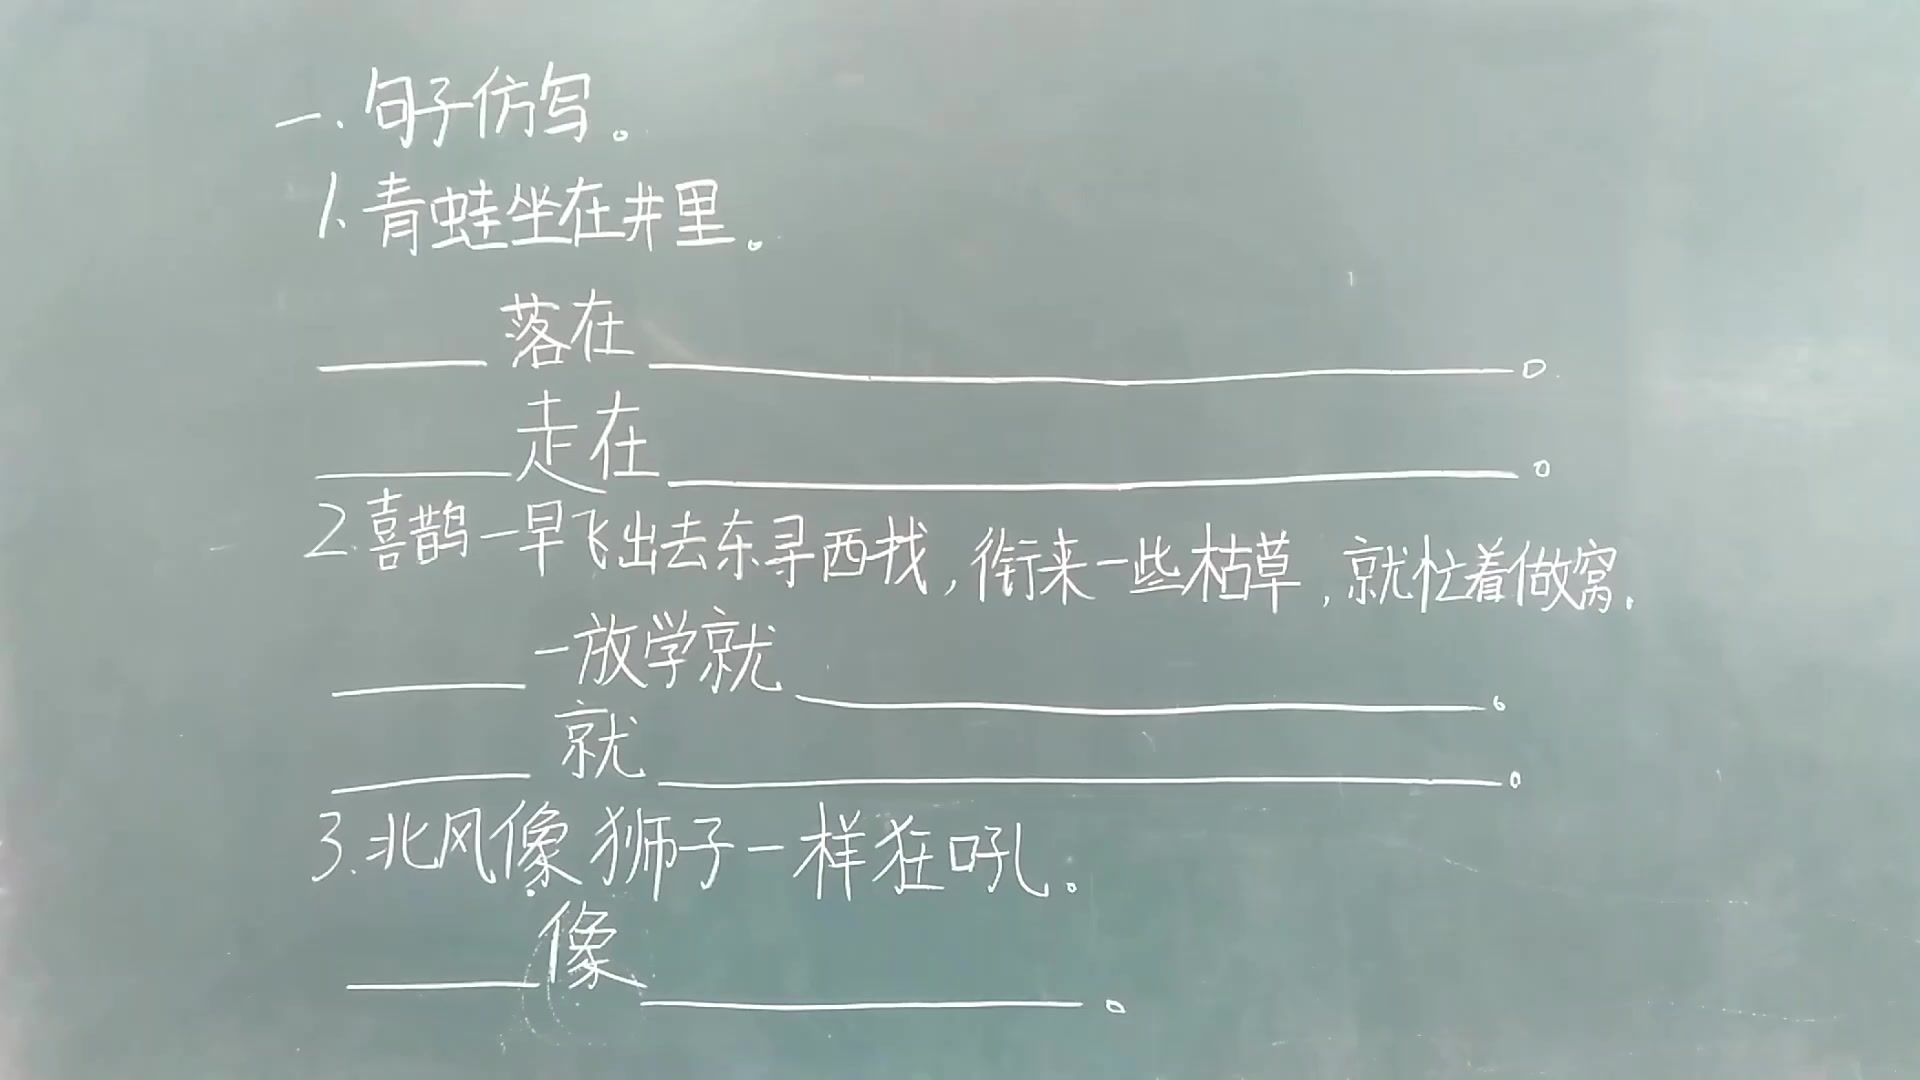 一.句子仿写。
1.青蛙坐在井里。
______落在______________________。
______走在______________________。
2.喜鹊一早飞出去东寻西找,衔来一些枯草,就忙着做窝.
______一放学就__________________。
______就______________________。
3.北风像狮子一样狂吼。
______像______________。